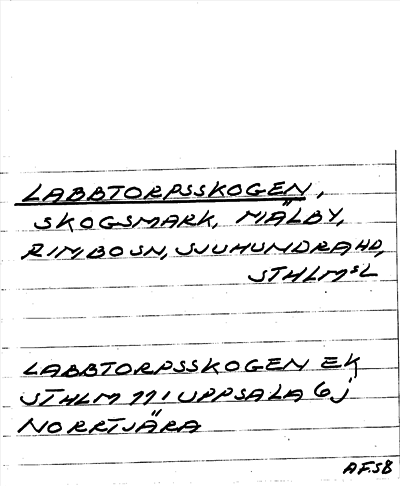 LABBTORPSSKOGEN,
SKOGSMARK, MÄLBY,
RIMBOSN, SJUHUNDRAHD,
STHLMSL
LABBTORPSSKOGEN EK
STHLM 11 I UPPSALA 6 J
NORRTJÄRA
AFSB